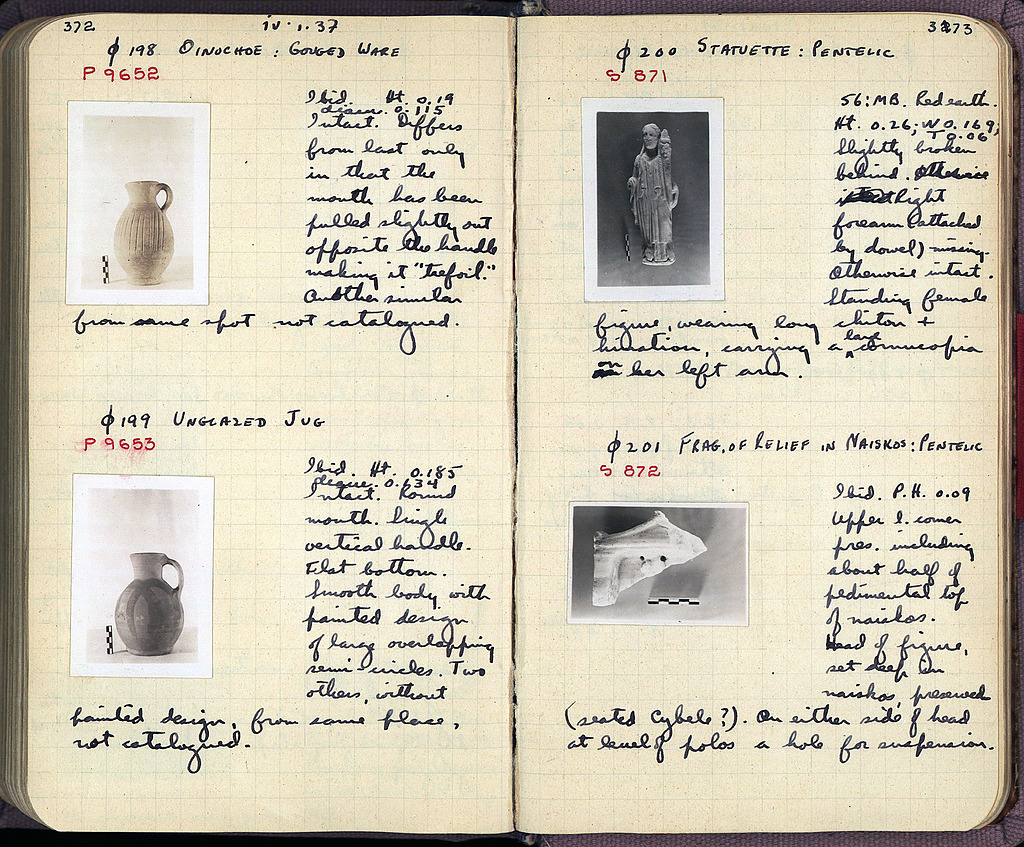 372
iv·1·37
φ 198 OINOCHOE : GOUGED WARE
P 9652
Ibid. Ht. 0.19
diam. 0.115
Intact. Differs
from last only
in that the
mouth has been
pulled slightly out
opposite the handle
making it "trefoil."
Another similar
from same spot not catalogued.
φ 199 UNGLAZED JUG
P 9653
Ibid. Ht. 0.185
Intact. Round
mouth. Single
vertical handle.
Flat bottom.
Smooth body with
painted design
of large overlapping
semi-circles. Two
others, without
painted design, from same place,
not catalogued.
373
φ 200 STATUETTE : PENTELIC
S 871
56:MB. Red earth.
Ht. 0.26; W 0.169;
T 0.06
Slightly broken
behind.
Right
forearm (attached
by dowel) missing.
Otherwise intact.
Standing female
figure, wearing long chiton +
himation, carrying a large cornucopia
on her left arm.
φ 201 FRAG. OF RELIEF IN NAISKOS : PENTELIC
S 872
Ibid. P.H. 0.09
Upper l. corner
pres. including
about half of
pedimental top
of naiskos.
Head of figure,
set deep in
naiskos, preserved
(seated Cybele?). On either side of head
at level of polos a hole for suspension.